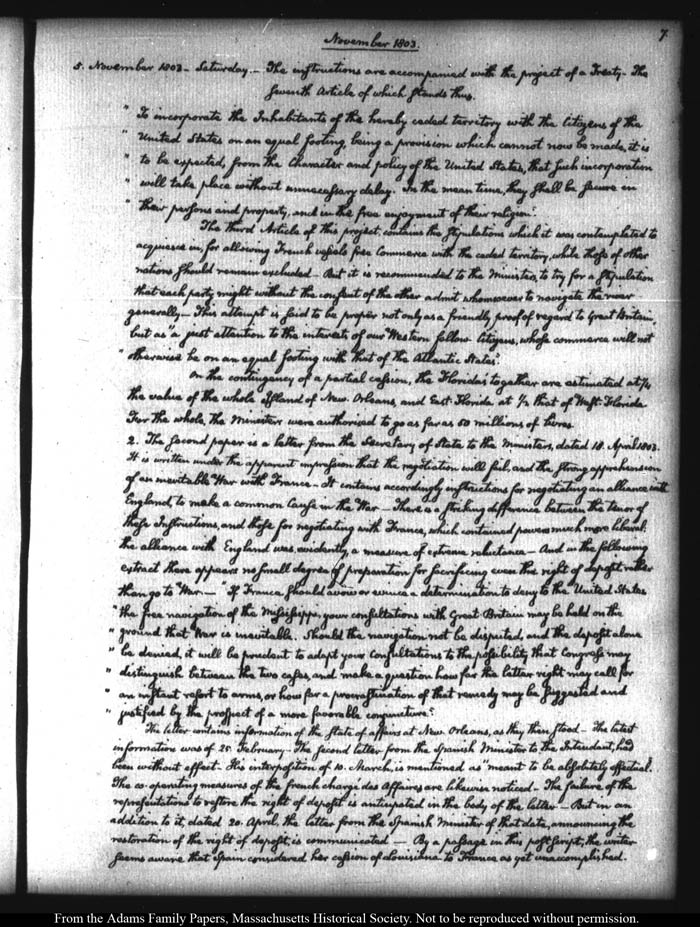 7.
November 1803.
5. November 1803 - Saturday. - The instructions are accompanied with the project of a Treaty - The
seventh Article of which stands thus.
" To incorporate the Inhabitants of the hereby ceded territory with the Citizens of the
" United States on an equal footing, being a provision which cannot now be made, it is
" to be expected, from the Character and policy of the United States, that such incorporation
" will take place without unnecessary delay. In the mean time, they shall be secure in
" their persons and property, and in the free enjoyment of their religion".
The third Article of this project, contains the stipulations which it was contemplated to
acquiesce in, for allowing French vessels free Commerce with the ceded territory, while those of other
nations should remain excluded - But it is recommended to the Ministers, to try for a stipulation
that each party might without the consent of the other admit whomsoever to navigate the river
generally - This attempt is said to be proper not only as a friendly proof of regard to Great Britain,
but as "a just attention to the interests of our Western fellow Citizens, whose commerce will not
" otherwise be on an equal footing with that of the Atlantic States".
On the contingency of a partial cession, the Florida's together are estimated at 1/4
the value of the whole Island of New Orleans, and East-Florida at 1/2 that of West-Florida
For the whole, the Ministers were authorized to go as far as 50 millions of livres
2. The second paper is a letter from the Secretary of State to the Ministers, dated 18. April 1803.
It is written under the apparent impression that the negotiation will fail, and the strong apprehension
of an inevitable War with France - It contains accordingly instructions for negotiating an alliance with
England, to make a common Cause in the War - There is a striking difference between the tenor of
these Instructions, and those for negotiating with France, which contained powers much more liberal.
the alliance with England was, evidently, a measure of extreme reluctance - And in the following
extract there appears no small degree of preparation for sacrificing even the right of deposit, rather
than go to War - "If France should avow or evince a determination to deny to the United States
" the free navigation of the Mississippi, your consultations with Great Britain may be held on the
" ground that War is inevitable. Should the navigation not be disputed, and the deposit alone
" be denied, it will be prudent to adapt your Consultations to the possibility that Congress may
" distinguish between the two cases, and make a question how far the latter right may call for
" an instant resort to arms, or how far a procrastination of that remedy may be suggested and
" justified by the prospect of a more favorable conjuncture".
The letter contains information of the state of affairs at New Orleans, as they then stood - The latest
information was of 25. February - The second letter from the Spanish Minister to the Intendant, had
been without effect. His interposition of 10. March, is mentioned as "meant to be absolutely effectual.
The co-operating measures of the french charge des Affaires are likewise noticed - The failure of the
representations to restore the right of deposit is anticipated in the body of the letter - But in an
addition to it, dated 20 April, the letter from the Spanish Minister of that date, announcing the
restoration of the right of deposit, is communicated - By a passage in this postscript, the writer
seems aware that Spain considered her cession of Louisiana to France as yet unaccomplished.
From the Adams Family Papers, Massachusetts Historical Society. Not to be reproduced without permission.